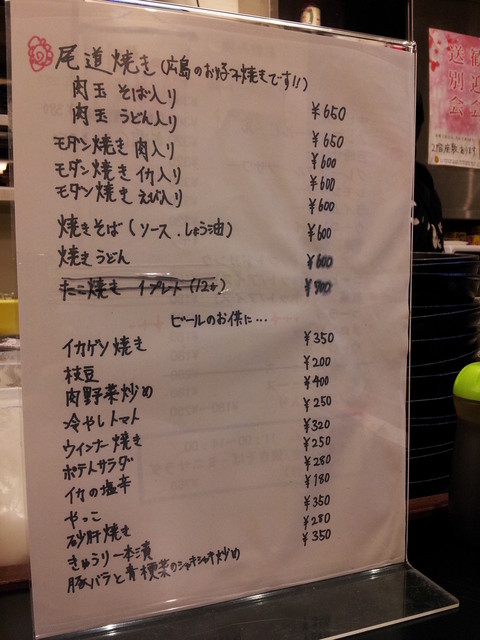 尾道焼き(広島のお好み焼きです!!)
肉玉 そば入り ¥650
肉玉 うどん入り ¥650
モダン焼き 肉入り ¥600
モダン焼き イカ入り ¥600
モダン焼き えび入り ¥600
焼きそば(ソース.しょう油) ¥600
焼きうどん ¥600
たこ焼き 1プレート(12ケ) ¥500
ビールのお供に…
イカゲソ焼き ¥350
枝豆 ¥200
肉野菜炒め ¥400
冷やしトマト ¥250
ウインナー焼き ¥320
ポテトサラダ ¥250
イカの塩辛 ¥280
やっこ ¥180
砂肝焼き ¥350
きゅうり一本漬 ¥280
豚バラと青梗菜のシャキシャキ炒め ¥350
歓迎会
送別会
2階座敷あります